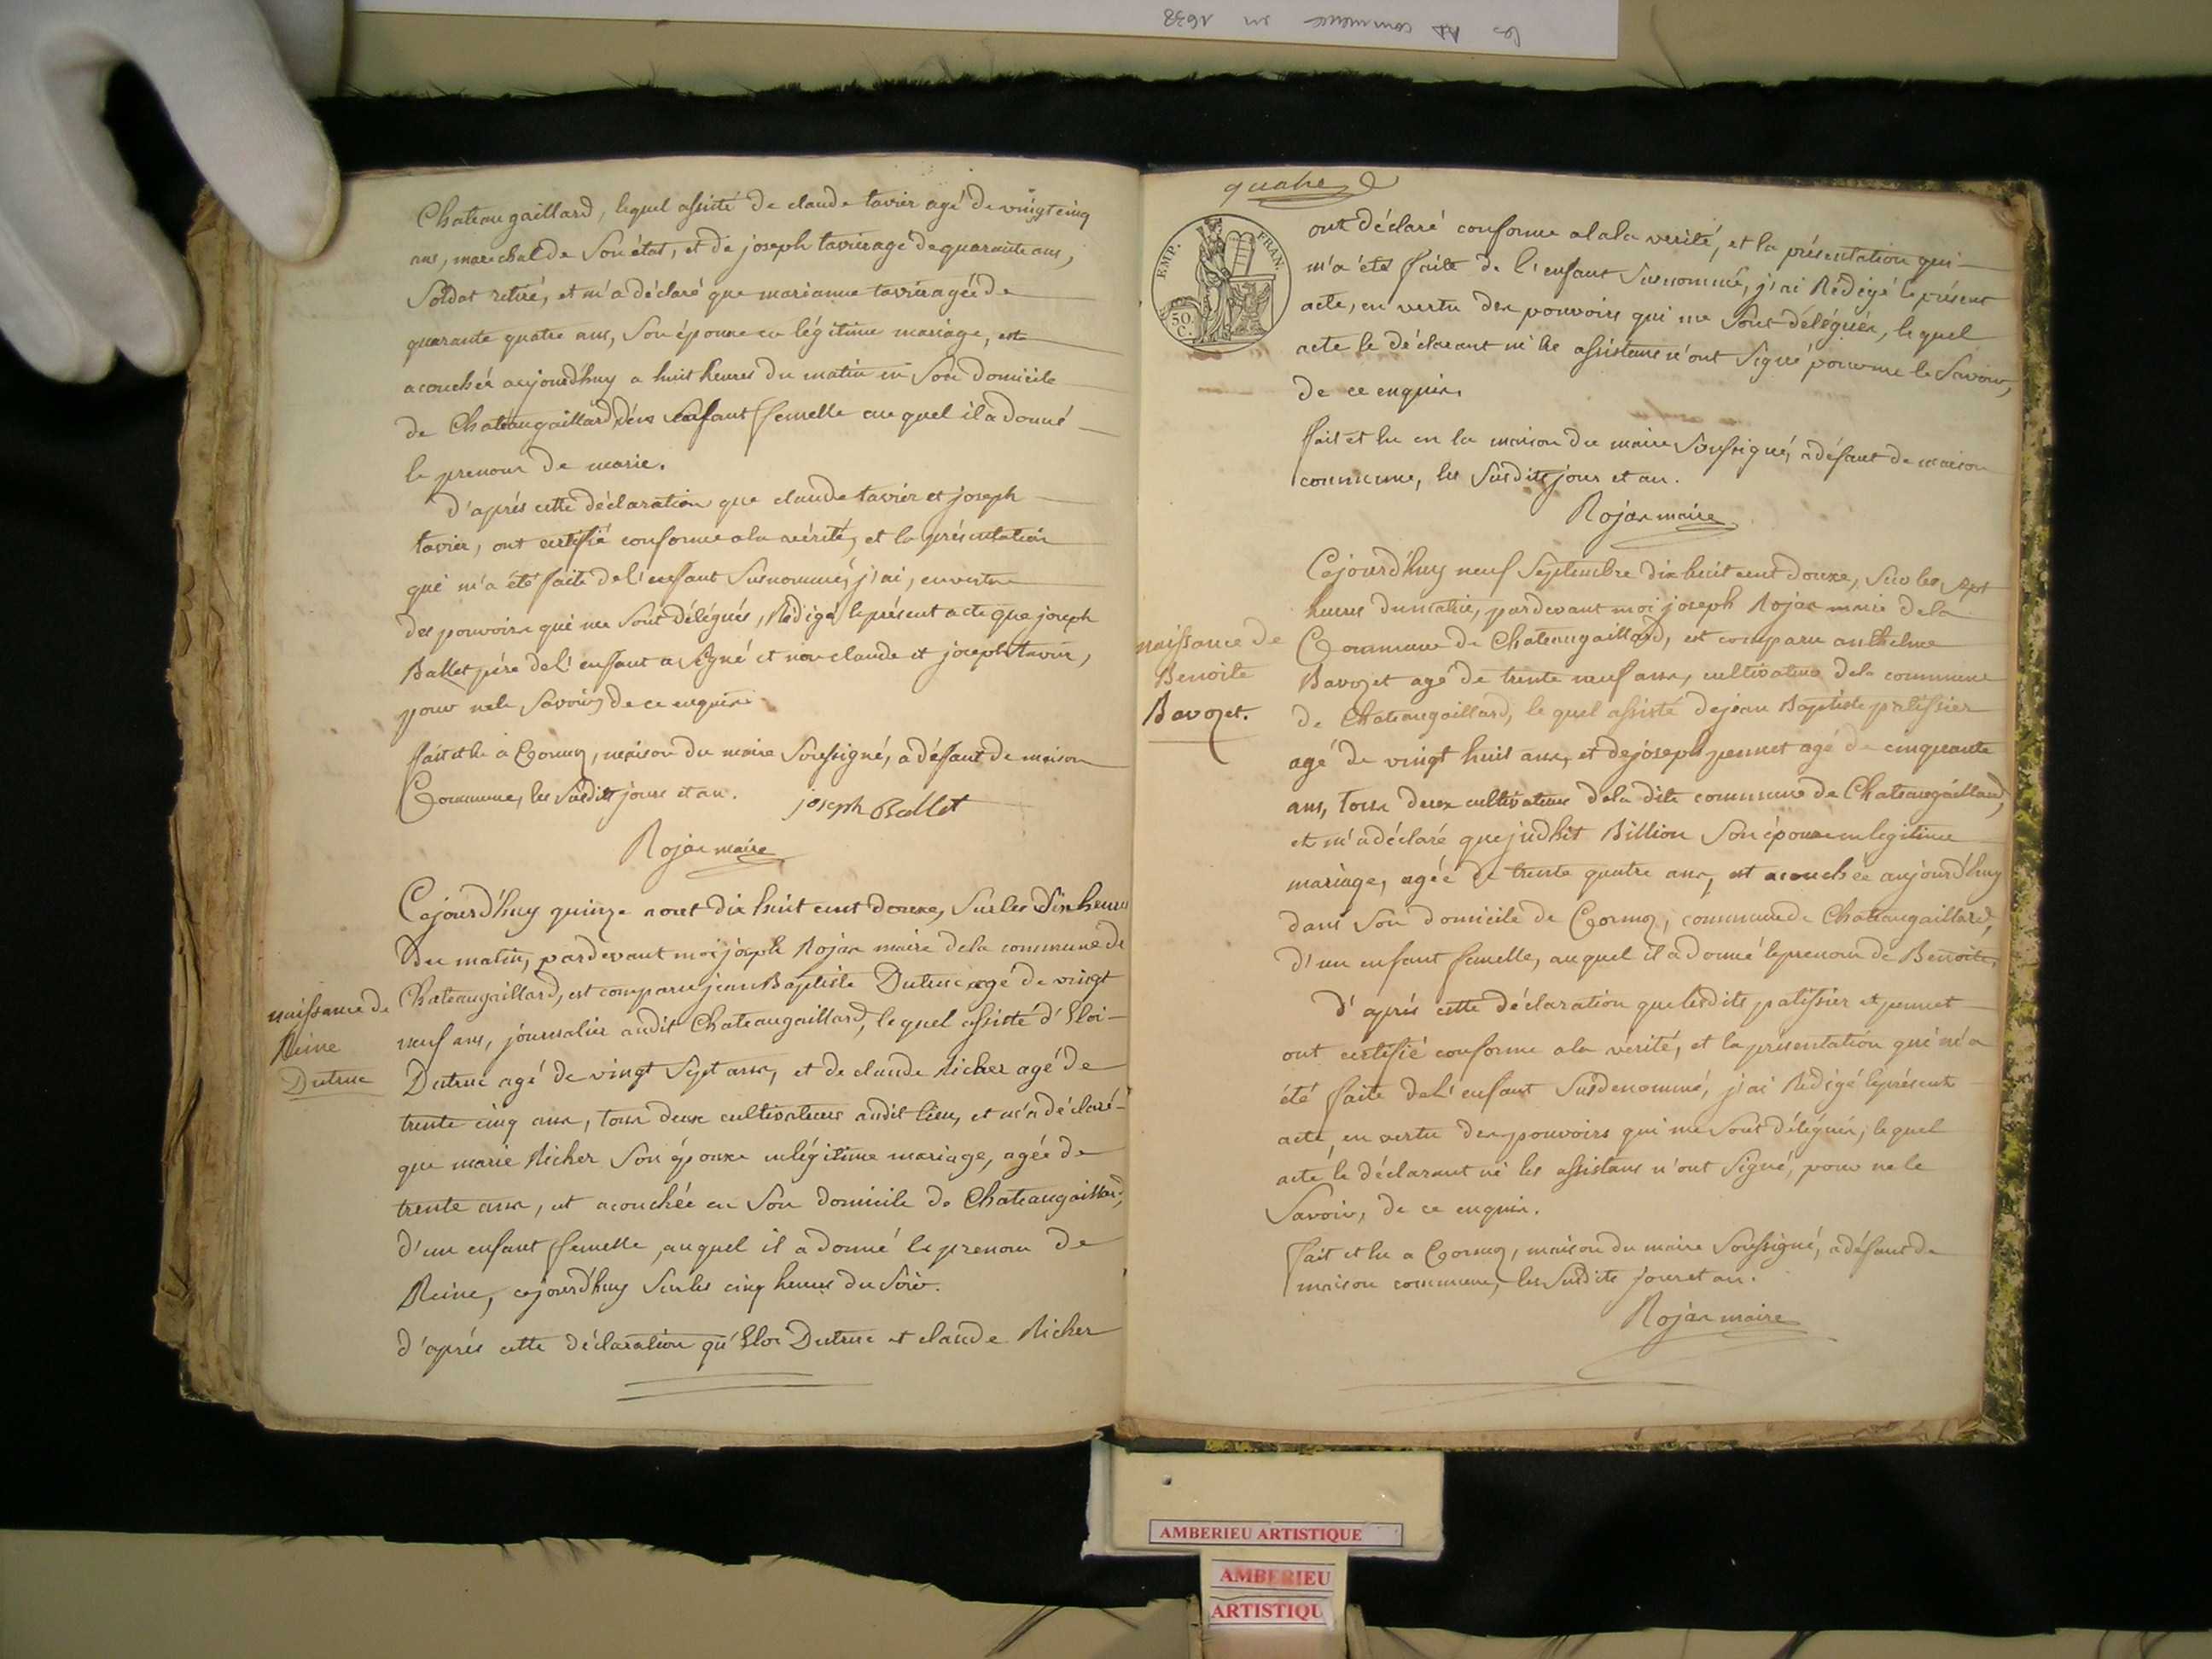 les commence en 1638
Chateaugaillard, lequel assisté de claude tavier agé de vingt cinq
ans, marechal de son état, et de joseph tavier agé de quarante ans,
Soldat retiré, et m'a déclaré que marianne tavier agée de
quarante quatre ans, son épouse en légitime mariage, est
acouchée aujourd'huy a huit heures du matin en son domicile
de Chateaugaillard, d'un enfant femelle au quel il a donné
le prenom de marie.
D'après cette déclaration que claude tavier et joseph
tavier, ont certifié conforme a la vérité, et la présentation
qui m'a été faite de l'enfant susnommé, j'ai, en vertu
des pouvoirs qui me sont délégués, Rédigé le présent acte que joseph
Ballet père de l'enfant a signé et non claude et joseph tavier,
pour ne le savoir, de ce enquis.
fait et lu a Cormoz, maison du maire soussigné, a défaut de maison
Commune, les susdits jour et an. joseph Ballet
Rojas maire
Cejourd'huy quinze aout dix huit cent douze, sur les dix heures
Du matin, pardevant moi joseph Rojas maire de la commune de
Chateaugaillard, est comparu jean Baptiste Dutruc agé de vingt
neuf ans, journalier audit Chateaugaillard, lequel assisté d'Eloi
Dutruc agé de vingt sept ans, et de claude Richer agé de
trente cinq ans, tous deux cultivateurs audit lieu, et m'a déclaré
que marie Richer son épouse en légitime mariage, agée de
trente ans, est acouchée en son domicile de Chateaugaillard,
d'un enfant femelle, auquel il a donné le prenom de
Reine, cejourd'huy sur les cinq heures du soir.
d'après cette déclaration qu'Eloi Dutruc et claude Richer
naissance de
Reine
Dutruc
quatre
EMP. FRAN.
50
C.
ont déclaré conforme a la la verité, et la présentation qui
m'a été faite de l'enfant susnommé, j'ai Rédigé le présent
acte, en vertu des pouvoirs qui me sont délégués, lequel
acte le déclarant ni les assistans n'ont signé pour ne le savoir,
de ce enquis.
fait et lu en la maison du maire soussigné, a défaut de maison
commune, les susdits jour et an.
Rojas maire
Cejourd'huy neuf Septembre dix huit cent douze, sur les sept
heures du matin, pardevant moi joseph Rojas maire de la
Commune de Chateaugaillard, est comparu anthelme
Bavozet agé de trente neuf ans, cultivateur de la commune
de Chateaugaillard, lequel assisté de jean Baptiste patissier
agé de vingt huit ans, et de joseph pennet agé de cinquante
ans, tous deux cultivateurs de la dite commune de Chateaugaillard,
et m'a déclaré que judhit Billion son épouse en legitime
mariage, agée de trente quatre ans, est acouchée aujourd'huy
dans son domicile de Cormoz, commune de Chateaugaillard,
d'un enfant femelle, auquel il a donné le prenom de Benoite.
D'après cette déclaration que lesdits patissier et pennet
ont certifié conforme a la verité, et la présentation qui m'a
été faite de l'enfant susdenommé, j'ai Rédigé le présent
acte, en vertu des pouvoirs qui me sont délégués, lequel
acte le déclarant ni les assistans n'ont signé, pour ne le
Savoir, de ce enquis.
fait et lu a Cormoz, maison du maire soussigné, a défaut de
maison commune, les susdits jour et an.
Rojas maire
naissance de
Benoite
Bavozet.
AMBERIEU ARTISTIQUE
AMBERIEU
ARTISTIQU